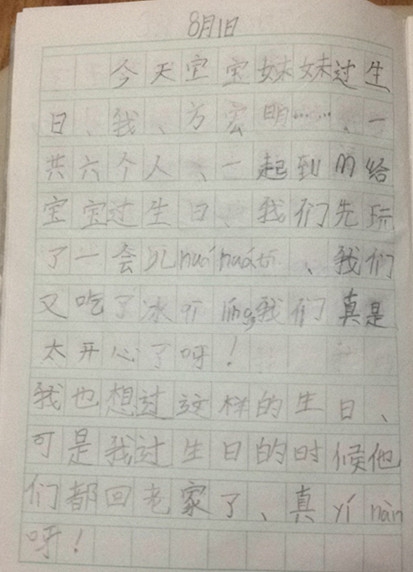 8月1日
今天宝宝妹妹过生
日、我、方宏明……、一
共六个人、一起到的给
宝宝过生日、我们先玩
了一会儿huá huá tī、我们
又吃了冰qí líng我们真是
太开心了呀！
我也想过这样的生日、
可是我过生日的时候他
们都回老家了、真yí hàn
呀！